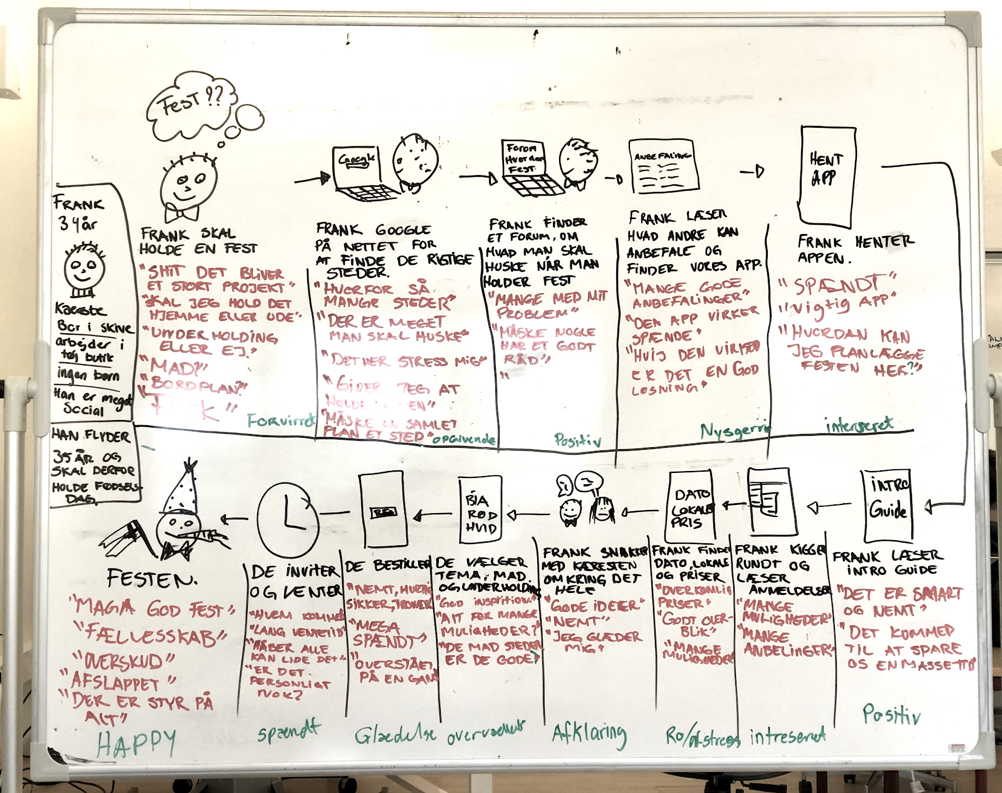 FEST ??
FRANK
34år
Kæreste
Bor i skive
arbejder i
tøj butik
ingen børn
Han er meget
Social
HAN FLYDER
35 ÅR OG
SKAL DERFOR
HOLDE FØDSELS
DAG.
FRANK SKAL
HOLDE EN FEST
"SHIT DET BLIVER
ET STORT PROJEKT"
"SKAL JEG HOLD DET
HJEMME ELLER UDE"
"UNDERHOLDING
ELLER EJ."
"MAD?"
"BORDPLAN?"
Forvirret
Google
FRANK GOOGLE
PÅ NETTET FOR
AT FINDE DE RIGTIGE
STEDER.
"HVORFOR SÅ
MANGE STEDER"
"DER ER MEGET
MAN SKAL HUSKE"
"DET HER STRESS MIG"
JEG AT
"MÅSKE SAMLET
PLAN ET STED"
opgivende
Forum
Hvordan
FEST
FRANK FINDER
ET FORUM, OM
HVAD MAN SKAL
HUSKE NÅR MAN
HOLDER FEST
"MANGE MED MIT
PROBLEM"
"MÅSKE NOGLE
HAR ET GODT
RÅD"
"
Positiv
ANBEFALING
FRANK LÆSER
HVAD ANDRE KAN
ANBEFALE OG
FINDER VORES APP.
"MANGE GODE
ANBEFALINGER"
"DEN APP VIRKER
SPÆNDE"
"HVIS DEN VIRKER
ER DET EN GOD
LØSNING"
Nysgerrig
HENT
APP
FRANK HENTER
APPEN.
"SPÆNDT"
"Vigtig APP"
"HVORDAN KAN
JEG PLANLÆGGE
FESTEN HER?"
interseret
INTRO
Guide
FRANK LÆSER
INTRO GUIDE
"DET ER SMART
OG NEMT"
"DET KOMMER
TIL AT SPARE
OS EN MASSE TID
Positiv
FRANK KIGGER
RUNDT OG
LÆSER
ANMELDELSER
"MANGE
MULIGHEDER"
"MANGE
ANBELINGER"
intreseret
DATO
LOKALE
PRIS
FRANK FINDER
DATO, LOKALE
OG PRISER
"OVERKOMLIG
PRISER"
"GODT OVER
BLIK"
"MANGE
MULIGHEDER
Ro/afstress
FRANK SNAKKER
MED KÆRESTEN
OMKRING DET
HELE
"GODE IDEER"
"NEMT"
"JEG GLÆDER
MIG"
Afklaring
BLÅ
RØD
HVID
DE VÆLGER
TEMA, MAD
OG UNDERHOLDING
"GOD INSPITION"
"ALT FOR MANGE
MULIGHEDER?"
"DE MAD STEDER
ER DE GODE"
overvældet
DE BESTILLER
"NEMT, HURTIG
SIKKER,
"MEGA
SPÆNDT"
"OVERSTÅET
PÅ EN GANG
Glædelse
DE INVITER
OG VENTER
"HVEM KOMMER
"LANG VENTETID"
"HÅBER ALLE
KAN LIDE DET"
"ER DET
PERSONLIGT
NOK?
spændt
FESTEN.
"MAGA GOD FEST"
"FÆLLESSKAB"
"OVERSKUD"
"AFSLAPPET"
"DER ER STYR PÅ
ALT"
HAPPY